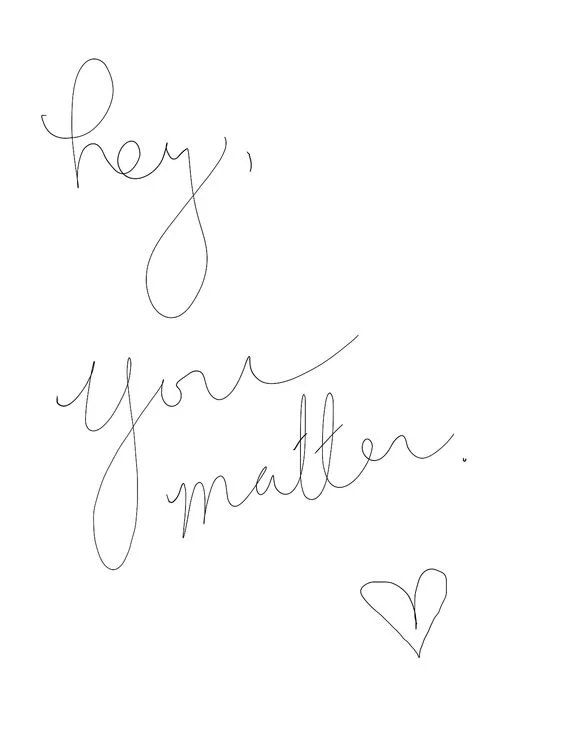 hey,
you
matter.